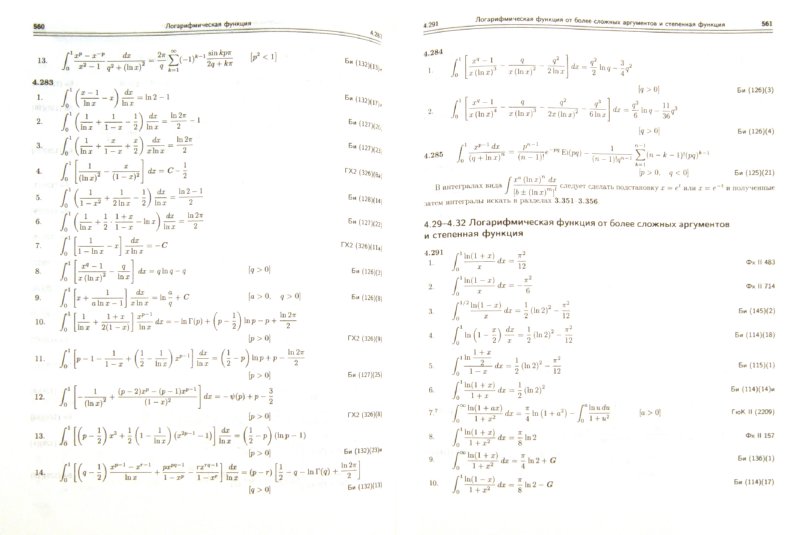 560 Логарифмическая функция 4.283
13. ∫₀¹ (x^p − x^{−p})/(x² − 1) dx/(q² + (ln x)²) = (2π/q) ∑_{k=1}^∞ (−1)^{k−1} (sin kpπ)/(2q + kπ) [p² < 1] Би (132)(13)
4.283
1. ∫₀¹ ((x − 1)/ln x − x) dx/ln x = ln 2 − 1 Би (132)(17)
2. ∫₀¹ (1/ln x + 1/(1 − x) − 1/2) dx/ln x = (ln 2π)/2 − 1 Би (127)(20)
3. ∫₀¹ (1/ln x + x/(1 − x) + x/2) dx/(x ln x) = (ln 2π)/2
4. ∫₀¹ [1/(ln x)² − x/(1 − x)²] dx = C − 1/2 ГХ2 (326)(8a)
5. ∫₀¹ (1/(1 − x²) + 1/(2 ln x) − 1/2) dx/ln x = (ln 2 − 1)/2 Би (128)(14)
6. ∫₀¹ (1/ln x + 1/2 · (1 + x)/(1 − x) − ln x) dx/ln x = (ln 2π)/2
7. ∫₀¹ [1/(1 − ln x) − x] dx/(x ln x) = −C ГХ2 (326)(11a)
8. ∫₀¹ [(x^q − 1)/(x (ln x)²) − q/ln x] dx = q ln q − q [q > 0] Би (126)(2)
9. ∫₀¹ [x + 1/(a ln x − 1)] dx/(x ln x) = ln (a/q) + C [a > 0, q > 0] Би (126)(8)
10. ∫₀¹ [1/ln x + (1 + x)/(2(1 − x))] x^{p−1}/ln x dx = −ln Γ(p) + (p − 1/2) ln p − p + (ln 2π)/2
[p > 0] ГХ2 (326)(9)
11. ∫₀¹ [p − 1 − 1/(1 − x) + (1/2 − 1/ln x) x^{p−1}] dx/ln x = (1/2 − p) ln p + p − (ln 2π)/2
[p > 0] Би (127)(25)
12. ∫₀¹ [−1/(ln x)² + ((p − 2)x^p − (p − 1)x^{p−1})/(1 − x)²] dx = −ψ(p) + p − 3/2
[p > 0] ГХ2 (326)(8)
13. ∫₀¹ [(p − 1/2) x³ + 1/2 (1 − 1/ln x)(x^{2p−1} − 1)] dx/ln x = (1/2 − p)(ln p − 1)
[p > 0] Би (132)(23)и
14. ∫₀¹ [(q − 1/2) (x^{p−1} − x^{r−1})/ln x + px^{pq−1}/(1 − x^p) − rx^{rq−1}/(1 − x^r)] dx/ln x = (p − r) [1/2 − q − ln Γ(q) + (ln 2π)/2]
[q > 0] Би (132)(13)
4.291 Логарифмическая функция от более сложных аргументов и степенная функция 561
4.284
1. ∫₀¹ [(x^q − 1)/(x (ln x)³) − q/(x (ln x)²) − q²/(2 ln x)] dx = (q²/2) ln q − (3/4) q²
[q > 0] Би (126)(3)
2. ∫₀¹ [(x^q − 1)/(x (ln x)⁴) − q/(x (ln x)³) − q²/(2x (ln x)²) − q³/(6 ln x)] dx = (q³/6) ln q − (11/36) q³
[q > 0] Би (126)(4)
4.285 ∫₀¹ x^{p−1} dx/(q + ln x)^n = p^{n−1}/(n − 1)! e^{−pq} Ei(pq) − 1/((n − 1)! q^{n−1}) ∑_{k=1}^{n−1} (n − k − 1)!(pq)^{k−1}
[p > 0, q < 0] Би (125)(21)
В интегралах вида ∫ x^n (ln x)^n dx/[b ± (ln x)^m]^l следует сделать подстановку x = e^t или x = e^{−t} и полученные
затем интегралы искать в разделах 3.351 3.356
4.29–4.32 Логарифмическая функция от более сложных аргументов
и степенная функция
4.291
1. ∫₀¹ ln(1 + x)/x dx = π²/12 Фх II 483
2. ∫₀¹ ln(1 − x)/x dx = −π²/6 Фх II 714
3. ∫₀^{1/2} ln(1 − x)/x dx = 1/2 (ln 2)² − π²/12 Би (145)(2)
4. ∫₀¹ ln (1 − x/2) dx/x = 1/2 (ln 2)² − π²/12 Би (114)(18)
5. ∫₀¹ ln ((1 + x)/2)/(1 − x) dx = 1/2 (ln 2)² − π²/12 Би (115)(1)
6. ∫₀¹ ln(1 + x)/(1 + x) dx = 1/2 (ln 2)² Би (114)(14)и
7.⁷ ∫₀^∞ ln(1 + ax)/(1 + x²) dx = π/4 ln (1 + a²) − ∫₀^a ln u du/(1 + u²) [a > 0] ГюК II (2209)
8. ∫₀¹ ln(1 + x)/(1 + x²) dx = π/8 ln 2 Фх II 157
9. ∫₀^∞ ln(1 + x)/(1 + x²) dx = π/4 ln 2 + G Би (136)(1)
10. ∫₀¹ ln(1 − x)/(1 + x²) dx = π/8 ln 2 − G Би (114)(17)